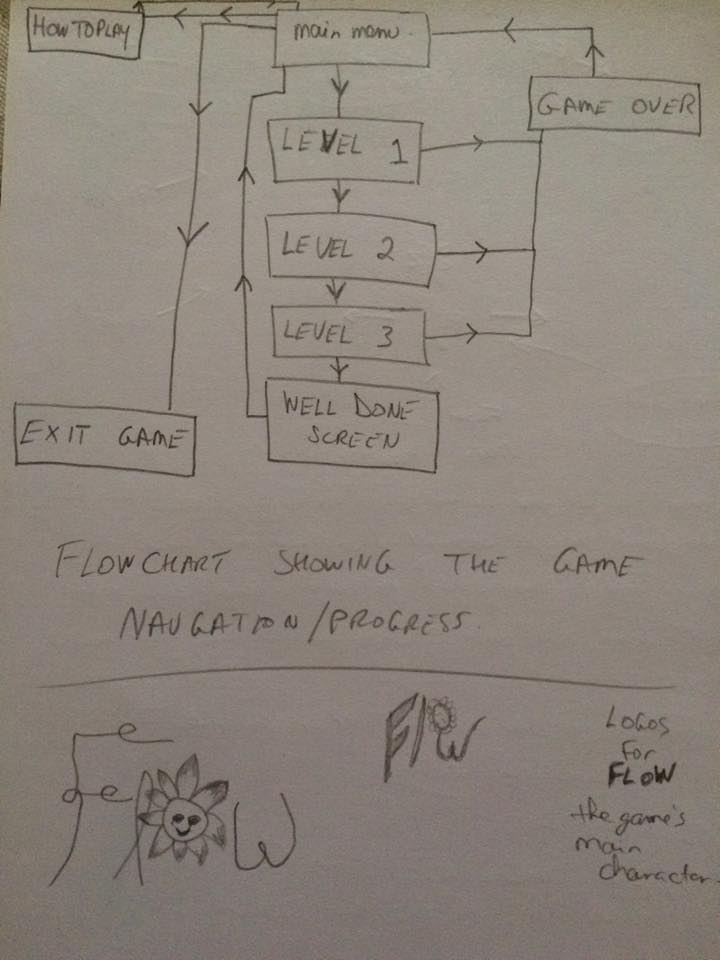 HOW TO PLAY
main menu
GAME OVER
LEVEL 1
LEVEL 2
LEVEL 3
WELL DONE
SCREEN
EXIT GAME
FLOWCHART SHOWING THE GAME
NAVGATION/PROGRESS.
FLOW
FLOW
LOGOS
FOR
FLOW
the game's
main
character.